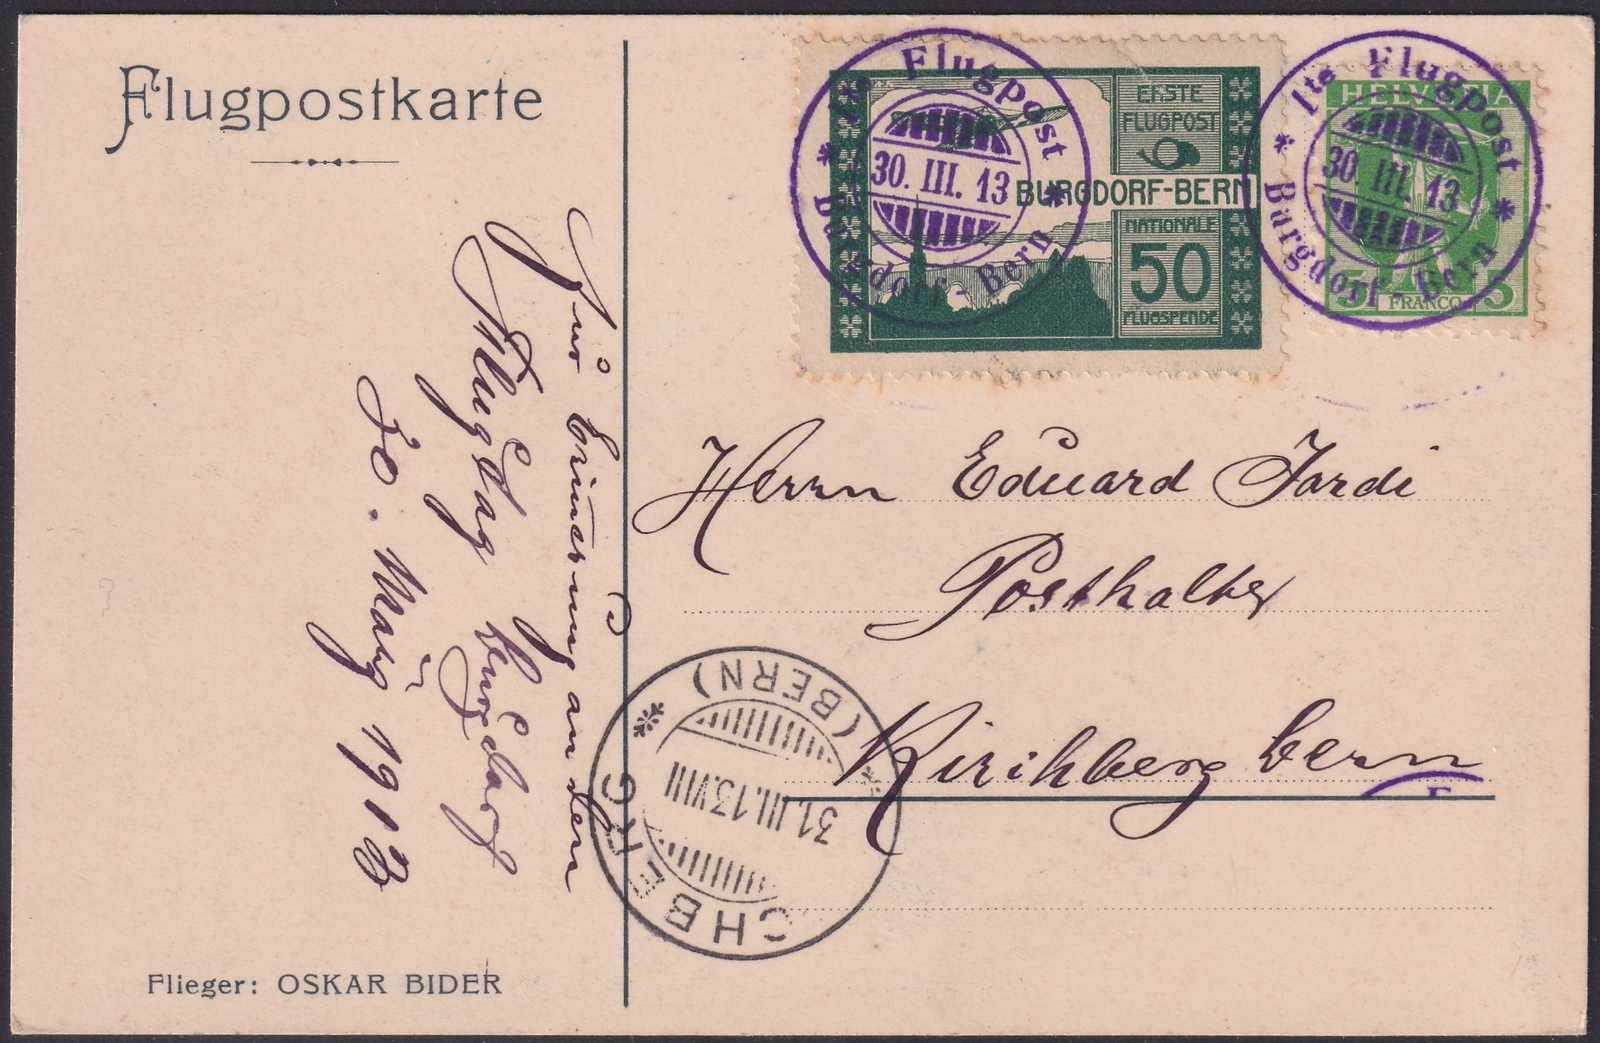 Flugpostkarte
Zur Erinnerung an den
Flugtag Burgdorf
30. März 1913
Flieger: OSKAR BIDER
ERSTE
FLUGPOST
BURGDORF-BERN
NATIONALE
50
FLUGSPENDE
1te Flugpost
30. III. 13
Burgdorf - Bern
HELVETIA
5 FRANCO 5
1te Flugpost
30. III. 13
Burgdorf - Bern
Herrn Eduard Jardi
Posthalter
Kirchberg Bern
CHBERG
31.III.13.VIII
(BERN)